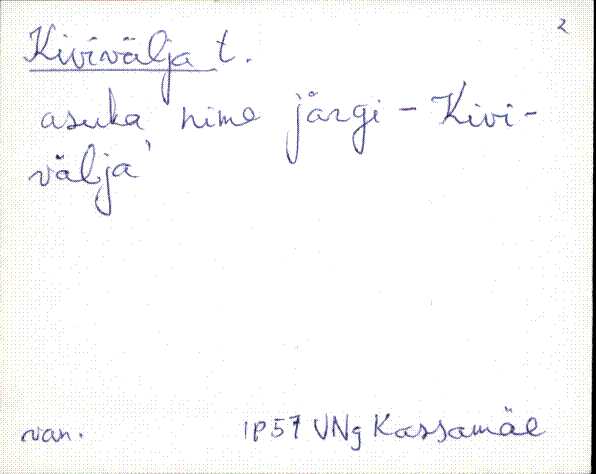 2
Kivivälja t.
asuka nime järgi - Kivi-
välja'
van. IP57 VNg Kassamäe